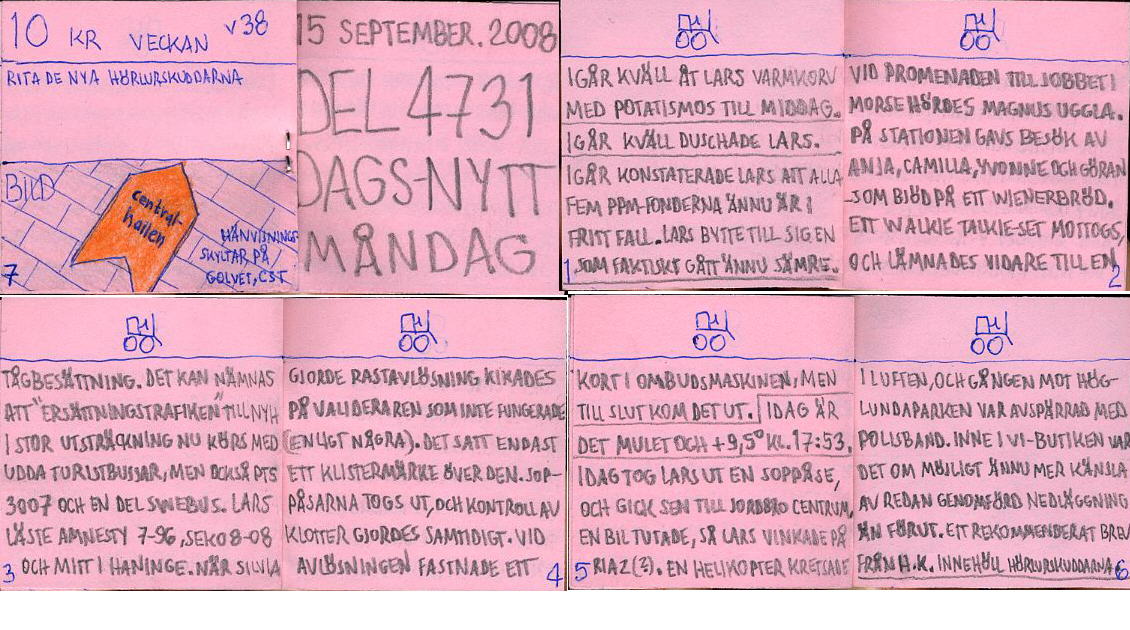 10 KR VECKAN V38
RITA DE NYA HÖRLURSKUDDARNA
BILD
central-
hallen
HÄNVISNINGS-
SKYLTAR PÅ
GOLVET, CST
7
15 SEPTEMBER. 2008
DEL 4731
DAGS-NYTT
MÅNDAG
IGÅR KVÄLL ÅT LARS VARMKORV
MED POTATISMOS TILL MIDDAG.
IGÅR KVÄLL DUSCHADE LARS.
IGÅR KONSTATERADE LARS ATT ALLA
FEM PPM-FONDERNA ÄNNU ÄR I
FRITT FALL. LARS BYTTE TILL SIG EN
SOM FAKTISKT GÅTT ÄNNU SÄMRE.
1
VID PROMENADEN TILL JOBBET I
MORSE HÖRDES MAGNUS UGGLA.
PÅ STATIONEN GAVS BESÖK AV
ANJA, CAMILLA, YVONNE OCH GÖRAN
SOM BJÖD PÅ ETT WIENERBRÖD.
ETT WALKIE TALKIE-SET MOTTOGS,
OCH LÄMNADES VIDARE TILL EN
2
TÅGBESÄTTNING. DET KAN NÄMNAS
ATT "ERSÄTTNINGSTRAFIKEN" TILL NYH
I STOR UTSTRÄCKNING NU KÖRS MED
UDDA TURISTBUSSAR, MEN OCKSÅ PTS
3007 OCH EN DEL SWEBUS. LARS
LÄSTE AMNESTY 7-96, SEKO 8-08
OCH MITT I HANINGE. NÄR SILVIA
3
GJORDE RASTAVLÖSNING KIKADES
PÅ VALIDERAREN SOM INTE FUNGERADE
(ENLIGT NÅGRA). DET SATT ENDAST
ETT KLISTERMÄRKE ÖVER DEN. SOP-
PÅSARNA TOGS UT, OCH KONTROLL AV
KLOTTER GJORDES SAMTIDIGT. VID
AVLÖSNINGEN FASTNADE ETT
4
KORT I OMBUDSMASKINEN, MEN
TILL SLUT KOM DET UT. IDAG ÄR
DET MULET OCH +9,5° KL. 17:53.
IDAG TOG LARS UT EN SOPPÅSE,
OCH GICK SEN TILL JORDBRO CENTRUM,
EN BIL TUTADE, SÅ LARS VINKADE PÅ
RIAZ(?). EN HELIKOPTER KRETSADE
5
I LUFTEN, OCH GÅNGEN MOT HÖG-
LUNDAPARKEN VAR AVSPÄRRAD MED
POLISBAND. INNE I VI-BUTIKEN VAR
DET OM MÖJLIGT ÄNNU MER KÄNSLA
AV REDAN GENOMFÖRD NEDLÄGGNING
ÄN FÖRUT. ETT REKOMMENDERAT BREV
FRÅN H.K. INNEHÖLL HÖRLURSKUDDARNA
6